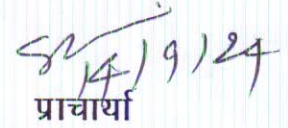 14/9/24
प्राचार्या